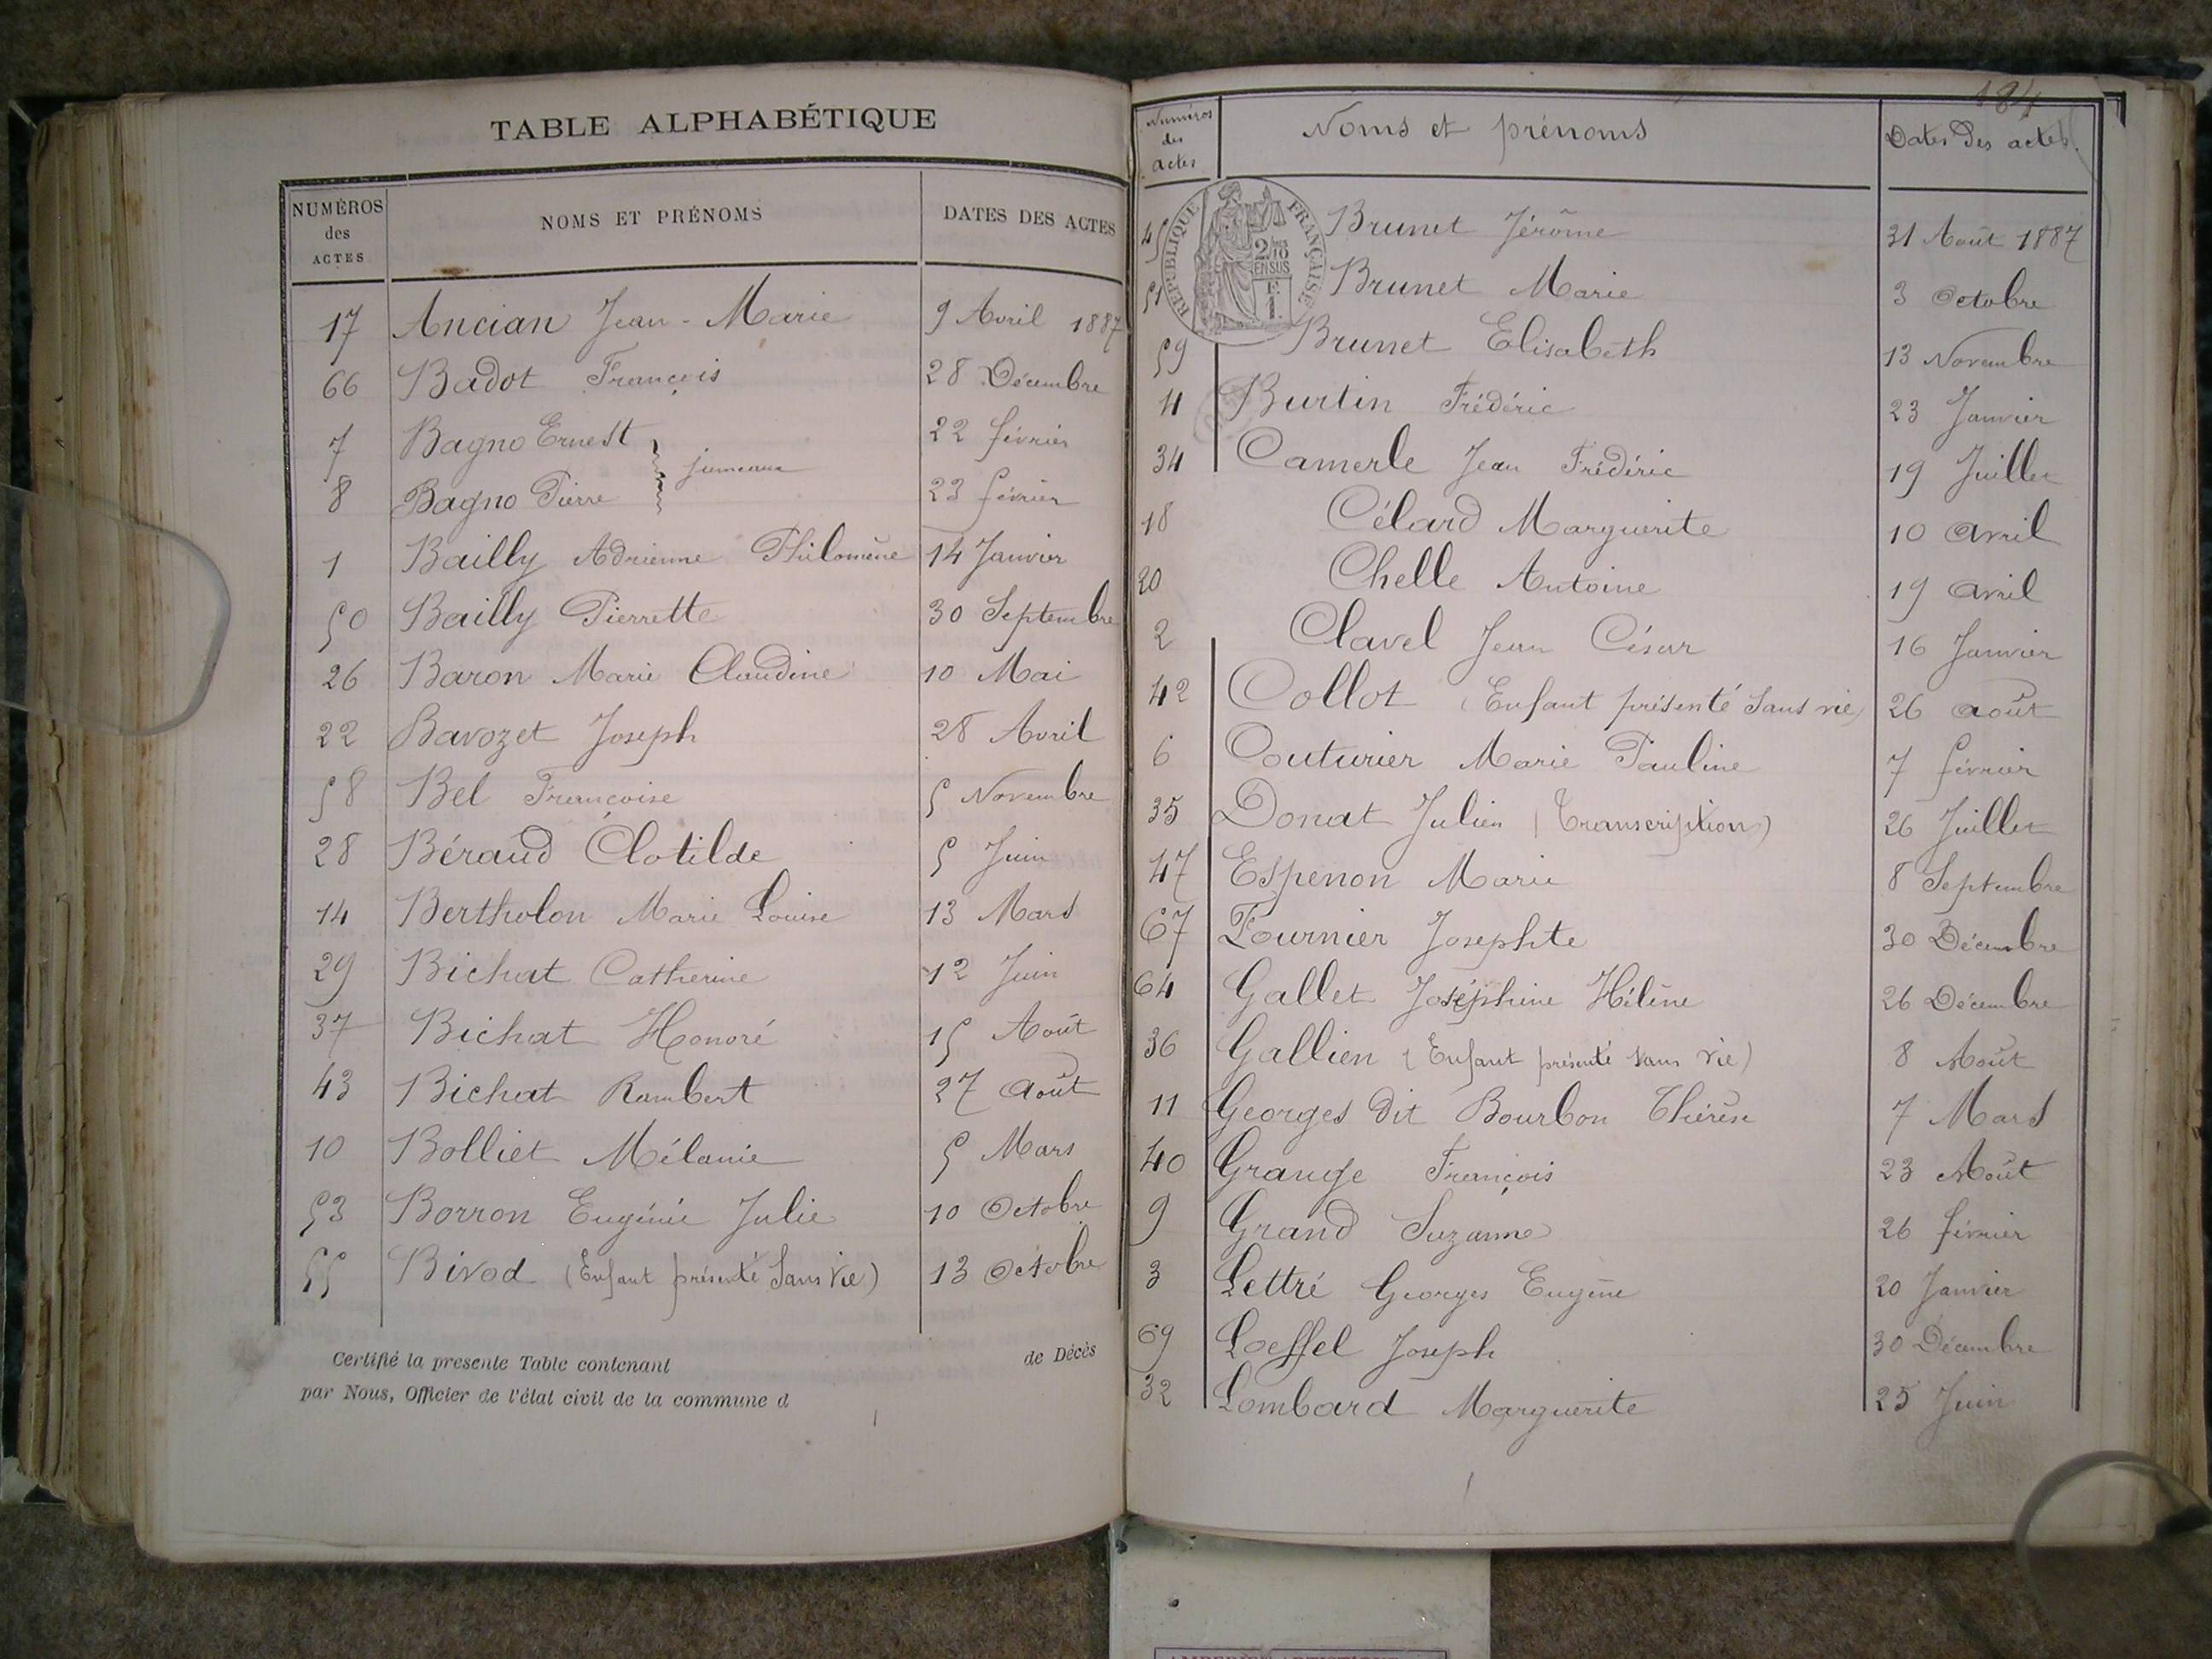 TABLE ALPHABÉTIQUE
NUMÉROS des ACTES NOMS ET PRÉNOMS DATES DES ACTES
17 Ancian Jean-Marie 9 Avril 1887
66 Badot François 28 Décembre
7 Bagno Ernest 22 février
jumeaux
8 Bagno Pierre 23 février
1 Bailly Adrienne Philomène 14 Janvier
50 Bailly Pierrette 30 Septembre
26 Baron Marie Claudine 10 Mai
22 Bavozet Joseph 28 Avril
58 Bel Françoise 5 Novembre
28 Béraud Clotilde 5 Juin
14 Bertholon Marie Louise 13 Mars
29 Bichat Catherine 12 Juin
37 Bichat Honoré 15 Août
43 Bichat Rambert 27 août
10 Bolliet Mélanie 5 Mars
53 Borron Eugénie Julie 10 Octobre
55 Bivod (Enfant présenté Sans Vie) 13 Octobre
Certifié la presente Table contenant de Décès
par Nous, Officier de l'état civil de la commune d
184
Numéros des actes Noms et prénoms Dates des actes
RÉPUBLIQUE FRANÇAISE
45 Brunet Jérôme 31 Août 1887
2/10 EN SUS
51 Brunet Marie 3 Octobre
59 Brunet Elisabeth 13 Novembre
4 Burtin Frédéric 23 Janvier
34 Camerle Jean Frédéric 19 Juillet
18 Célard Marguerite 10 avril
20 Chelle Antoine 19 avril
2 Clavel Jean César 16 Janvier
42 Collot (Enfant présenté Sans vie) 26 août
6 Couturier Marie Pauline 7 février
35 Donat Julien (Transcription) 26 Juillet
47 Espenon Marie 8 Septembre
67 Fournier Josephte 30 Décembre
64 Gallet Joséphine Hélène 26 Décembre
36 Gallien (Enfant présenté sans vie) 8 Août
11 Georges dit Bourbon Thérèse 7 Mars
40 Grange François 23 Août
9 Grand Suzanne 26 février
3 Lettré Georges Eugène 20 Janvier
69 Loeffel Joseph 30 Décembre
32 Lombard Marguerite 25 Juin